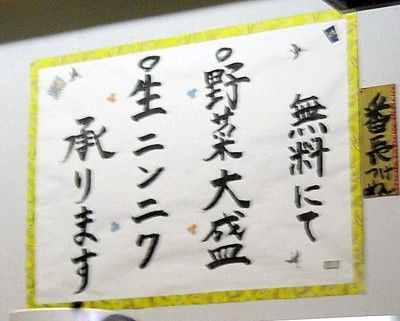 無料にて
○野菜大盛
○生ニンニク
承ります
番長つけめん